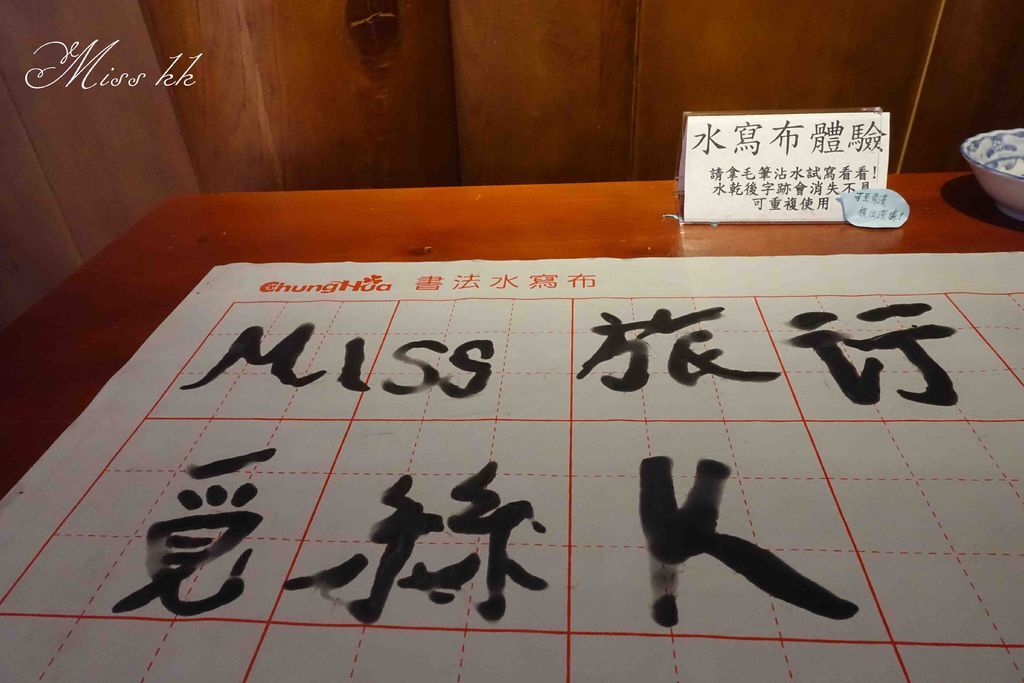 Miss kk
水寫布體驗
請拿毛筆沾水試寫看看!
水乾後字跡會消失不見
可重複使用
ChungHua 書法水寫布
MISS 旅行
覓絲K